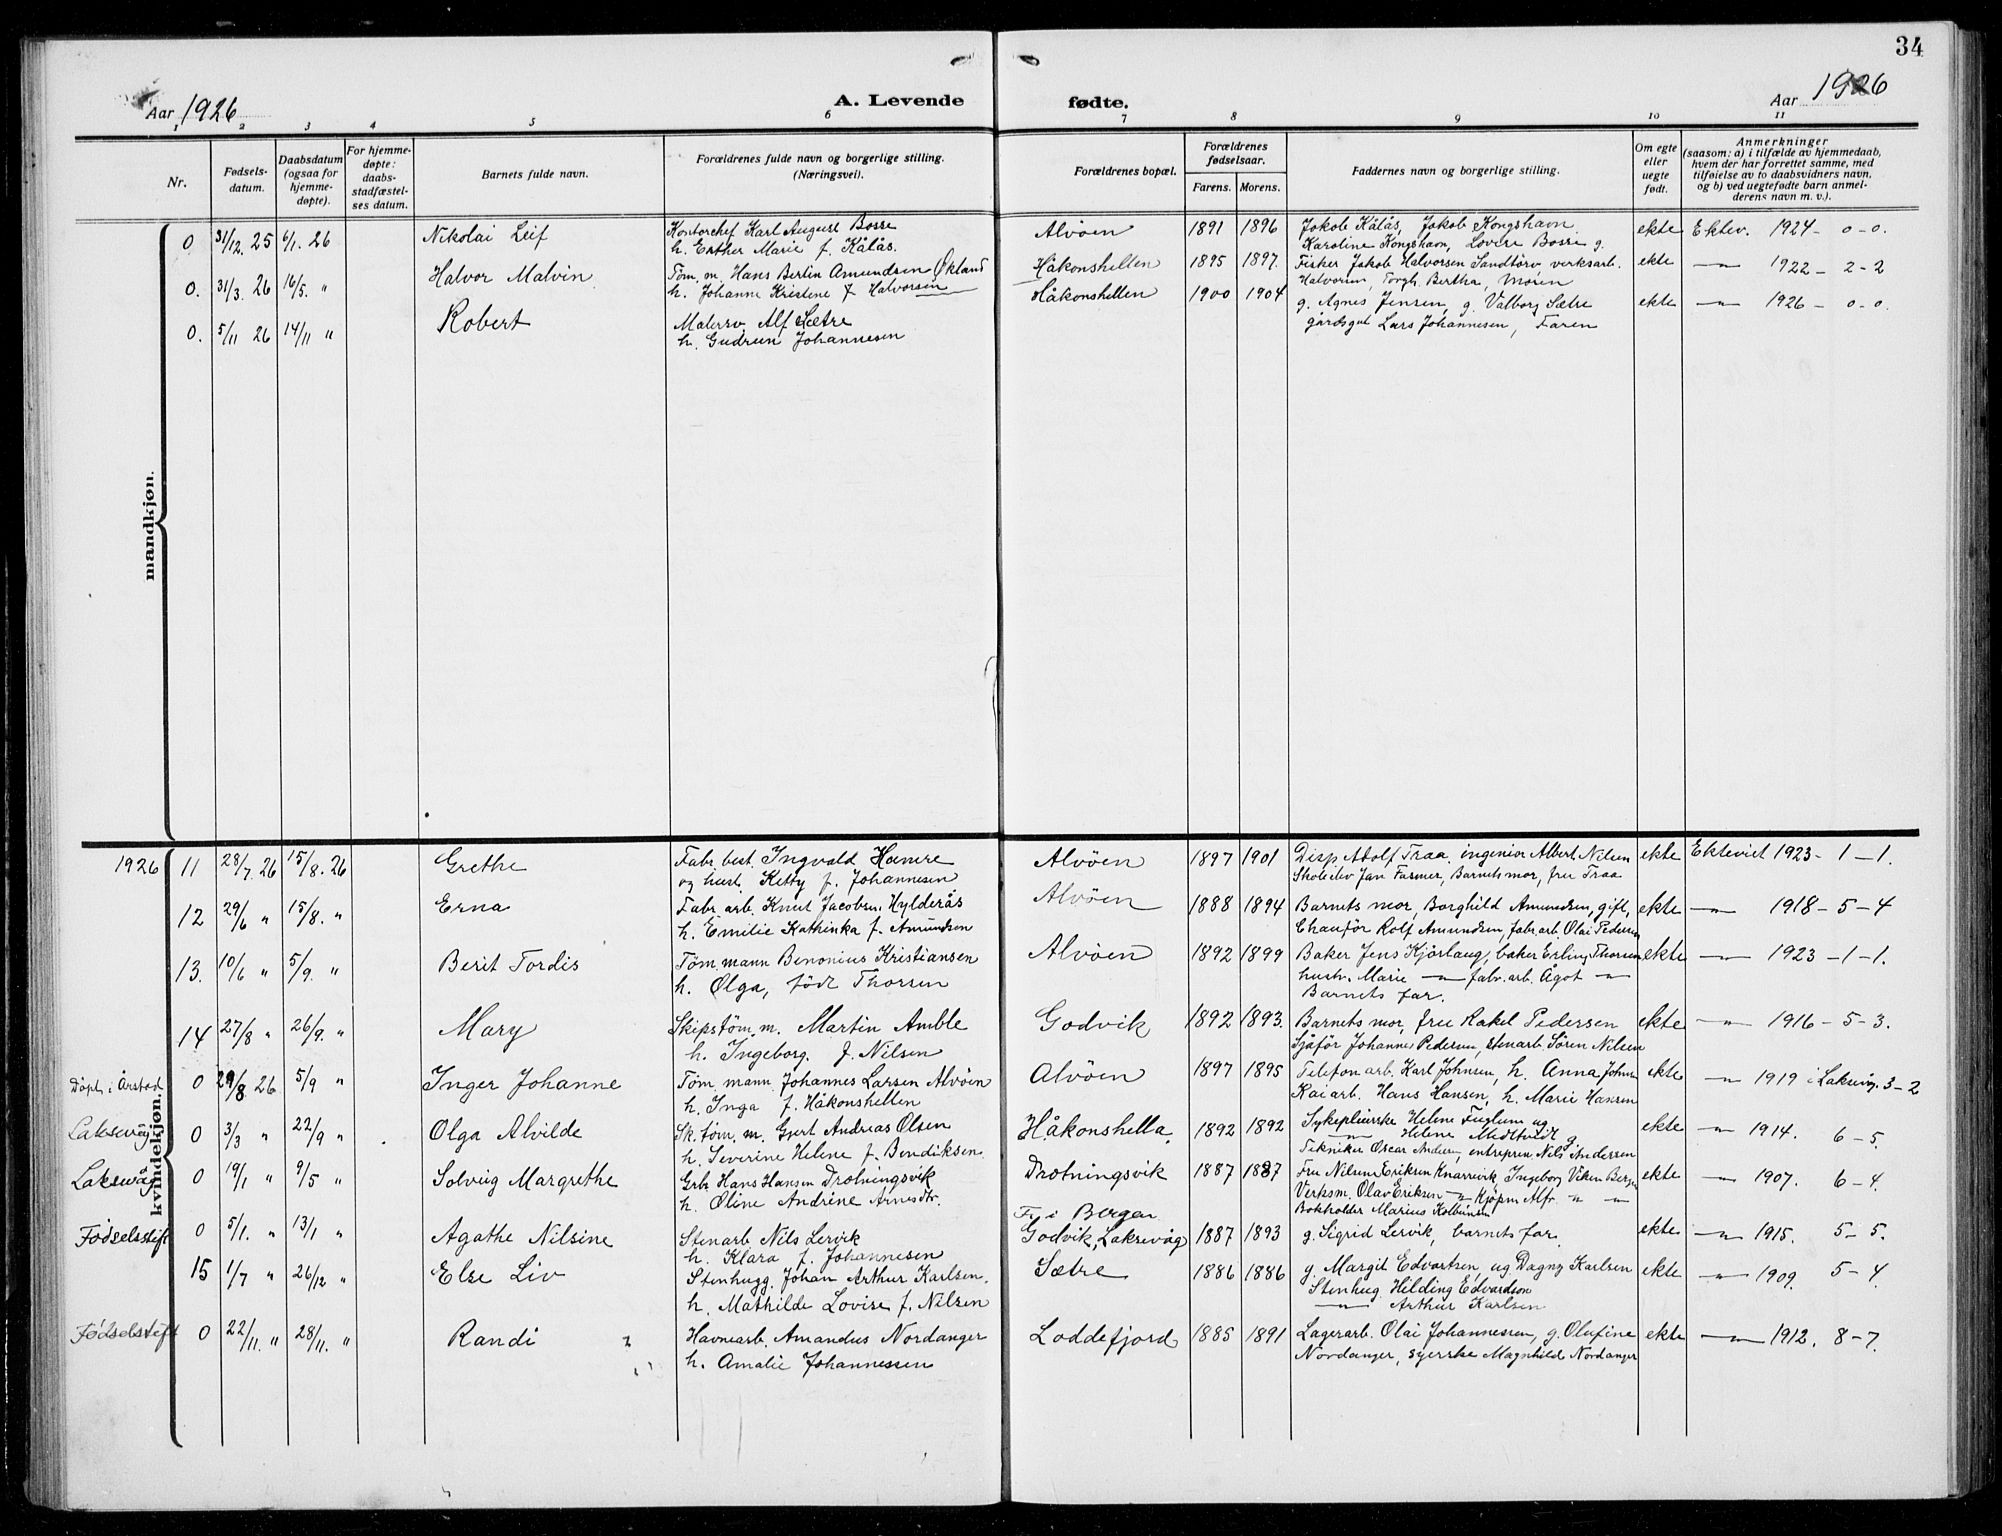 34
Aar 1926
A. Levende
fødte.
Aar 1926
1 2 3 4 5 6 7 8 9 10 11
Nr.
Fødsels-
datum.
Daabsdatum
(ogsaa for
hjemme-
døpte).
For hjemme-
døpte:
daabs-
stadfæstel-
ses datum.
Barnets fulde navn.
Forældrenes fulde navn og borgerlige stilling.
(Næringsvei).
Forældrenes bopæl.
Forældrenes
fødselsaar.
Farens. Morens.
Faddernes navn og borgerlige stilling.
Om egte
eller
uegte
født.
Anmerkninger
(saasom: a) i tilfælde av hjemmedaab,
hvem der har forrettet samme, med
tilføielse av to daabsvidners navn,
og b) ved uegtefødte barn anmel-
derens navn m. v.).
mandkjøn.
0 31/12. 25 6/1. 26 Nikolai Leif Kontorchef Karl August Bosse Alvöen 1891 1896 Jakob Kålås, Jakob Kongshavn ekte Ektev. 1924 - 0 - 0.
h. Esther Marie f. Kålås. Karoline Kongshavn, Lovise Bosse g.
0. 31/3. 26 16/5. " Halvor Malvin Töm. m. Hans Berlin Amundsen Ökland Håkonshellen 1895 1897. Fisker Jakob Halvorsen Sandtorv, verksarb. ekte — " — 1922 - 2 - 2
h. Johanne Kristene f Halvorsen Halvorsen, Torgh. Bertha, Moren
0. 5/11 26 14/11 " Robert Malersv. Alf Sætre Håkonshellen 1900 1904 g. Agnes Jensen, g. Valborg Sætre ekte — " — 1926 - 0 - 0.
h. Gudrun Johannesen gårdsgut Lars Johannesen, Faren
kvindekjøn.
1926 11 28/7. 26 15/8. 26 Grethe Fabr. best. Ingvald Hamre Alvöen 1897 1901 Disp Adolf Traa, ingeniør Albert Nilsen ekte Ektevict 1923 - 1 - 1.
og hust. Ketty f. Johannesen Skoleelev Jan Farmer, Barnets mor, fru Traa
12 29/6 " 15/8. " Erna Fabr. arb. Knut Jacobsen Hylderås Alvöen 1888 1894 Barnets mor, Borghild Amundsen, gift, ekte — " — 1918 - 5 - 4
h. Emilie Kathinka f. Amundsen Chauför Rolf Amundsen, fabr. arb. Olai Pedersen
13. 10/6 " 5/9. " Berit Tordis Töm. mann Benonius Kristiansen Alvöen 1892 1899 Baker Jens Kjörlaug, baker Erling Thorsen ekte — " — 1923 - 1 - 1.
h. Olga, född Thorsen hustr. Marie — " — fabr. arb. Ågot — " —
Barnets far.
14 27/8 " 26/9. " Mary Skipstöm. m. Martin Amble Godvik 1892 1893. Barnets mor, fru Rakel Pedersen ekte — " — 1916 - 5 - 3.
h. Ingeborg. f. Nilsen Sjåför Johannes Pedersen, stenarb. Sören Nilsen
Döpt i Årstad 0 29/8 26 5/9 " Inger Johanne Töm. mann Johannes Larsen Alvöen Alvöen 1897 1895 Telefonarb. Karl Johnsen, h. Anna Johnsen ekte — " — 1919 i Laksevåg. 3 - 2
h. Inga f. Håkonshellen Kaiarb. Hans Hansen, h. Marie Hansen
Laksevåg 0 3/3 " 22/9 " Olga Alvilde Sk. töm. m. Gjert Andreas Olsen Håkonshella 1892 1892 Sykepleierske Helene Fuglum ug ekte — " — 1914. 6 - 5.
h. Severine Helene f. Bendiksen. — " — Helene Midttveidt g.
Tekniker Oscar Andersen, entrepren. Nils Anderssen
Laksevåg 0 19/1 " 9/5 " Solveig Margrethe Grb. Hans Hansen Drotningsvik Drotningsvik 1887 1887 Fru Nilsine Eriksen Knarrevik, Ingeborg Viken Bergen ekte — " — 1907. 6 - 4.
h. Oline Andrine Arnesdtr. Verksm. Olav Eriksen — " — Kjöpm Alfr. — " —
Bokholder Marius Kolbensen
Fødselsstift 0 5/1. " 13/1 " Agathe Nilsine Stenarb Nils Lervik F. i Bergen
Godvik, Laksevåg 1887 1893 g. Sigrid Lervik, barnets far. ekte — " — 1915. 5 - 5.
h. Klara f. Johannesen
15 1/7 " 26/12 " Else Liv Stenhugg. Johan Arthur Karlsen. Sætre 1886 1886 g. Margit Edvartsen, ug Dagny Karlsen ekte — " — 1909. 5 - 4.
h. Mathilde Lovise f. Nilsen Stenhug Hilding Edvardson
— " — Arthur Karlsen
Fødselsstift 0 22/11. " 28/11. " Randi Havnearb. Amandus Nordanger Loddefjord 1885 1891 Lagerarb. Olai Johannessen, g. Olufine ekte — " — 1912. 8 - 7.
h. Amalie Johannessen Nordanger, syerske Magnhild Nordanger